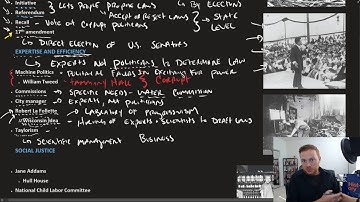 Initiative
Referendum
Recall - Vote out corrupt politicians
17th amendment
↳ Direct election of U.S. Senators
EXPERTISE AND EFFICIENCY
↳ Experts Not Politicians to Determine Law
Machine Politics - Political Favors in Exchange for Power
William Tweed - Tammany Hall } Corrupt
Commissions - Specific Needs - Water Commission
City manager - Experts, Not Politicians
Robert La Follette - Laboratory of Progressivism
Wisconsin Idea - Meetings of Experts + Scientists to Draft Laws
Taylorism
↳ Scientific Management Business
SOCIAL JUSTICE
Jane Addams
Hull House
National Child Labor Committee
Lets People Propose Laws
By Electors
Accept or Reject Laws
State Level